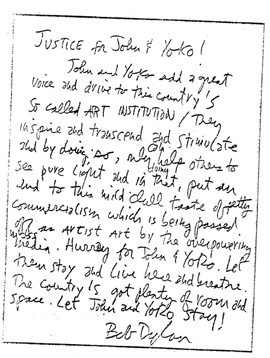 JUSTICE for John & Yoko!
John and Yoko add a great
voice and drive to this country's
So called ART INSTITUTION / They
inspire and transcend and stimulate
and by doing so, only can help others to
see pure light and in doing that, put an
end to this mild dull taste of petty
commercialism which is being passed
off as ARTIST ART by the overpowering
mass media. Hurray for John & Yoko. Let
them stay and live here and breathe.
The country's got plenty of room and
space. Let John and Yoko stay!
Bob Dylan